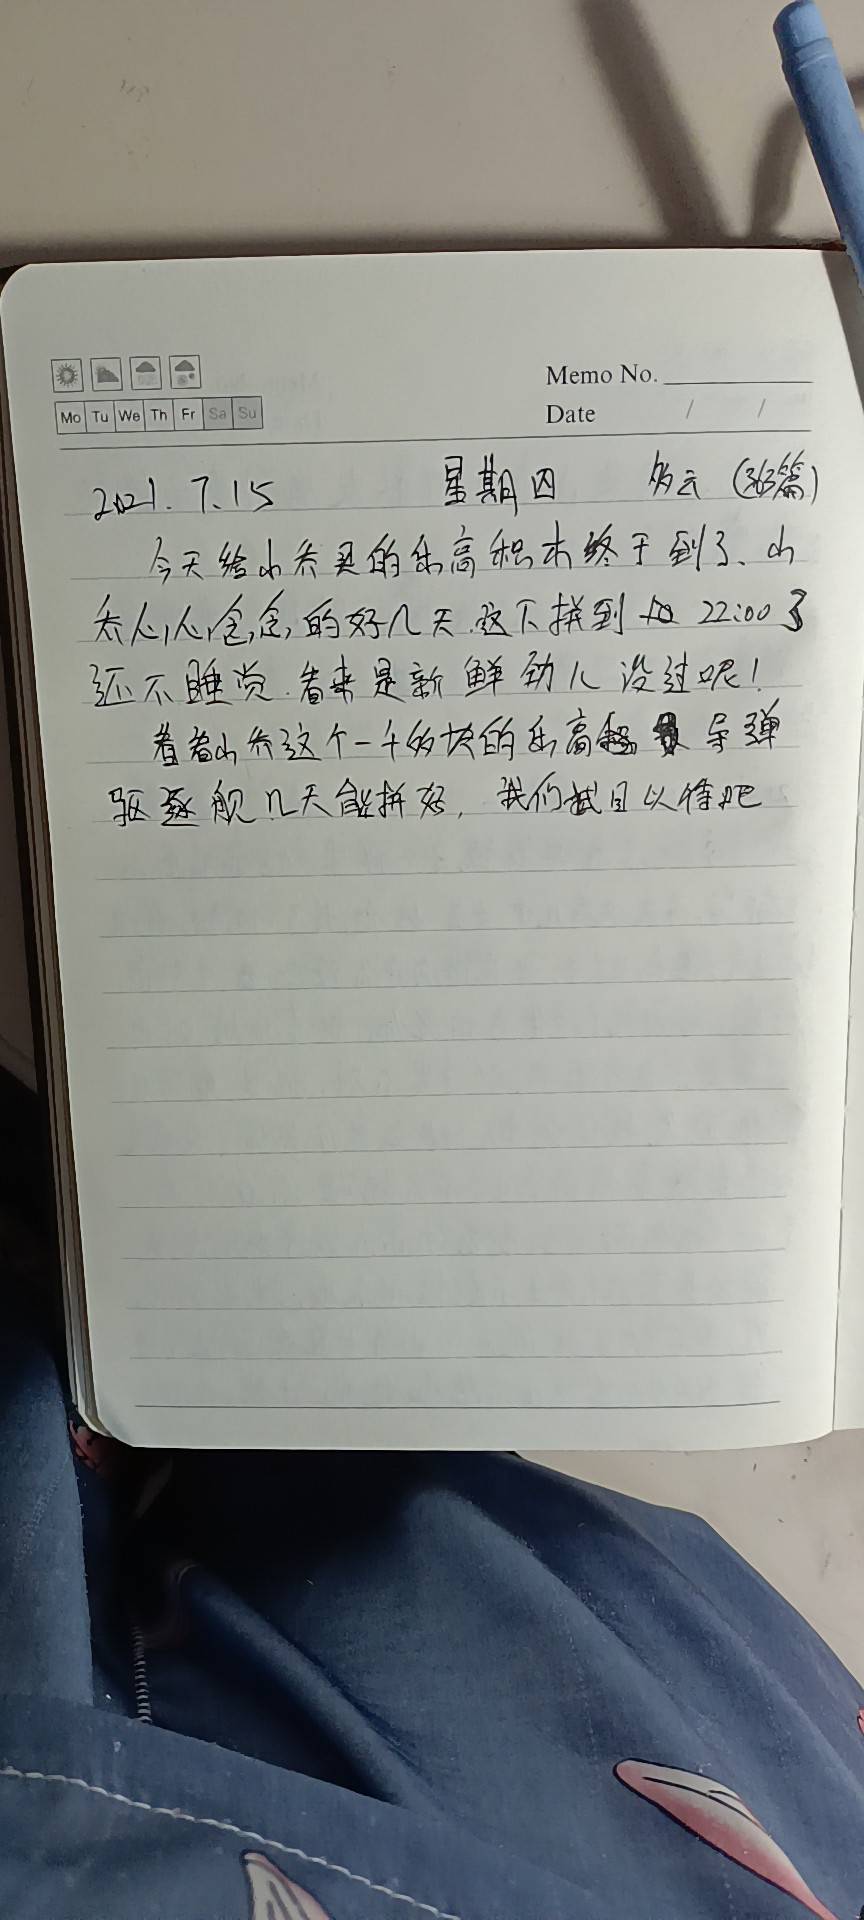 Mo Tu We Th Fr Sa Su
Memo No.
Date / /
2021.7.15 星期四 多云 (363篇)
今天给小乔买的乐高积木终于到了、小
乔心心念念的好几天.这下拼到 22:00了
还不睡觉.看来是新鲜劲儿没过呢!
看看小乔这个一千多块的乐高 导弹
驱逐舰几天能拼好,我们拭目以待吧